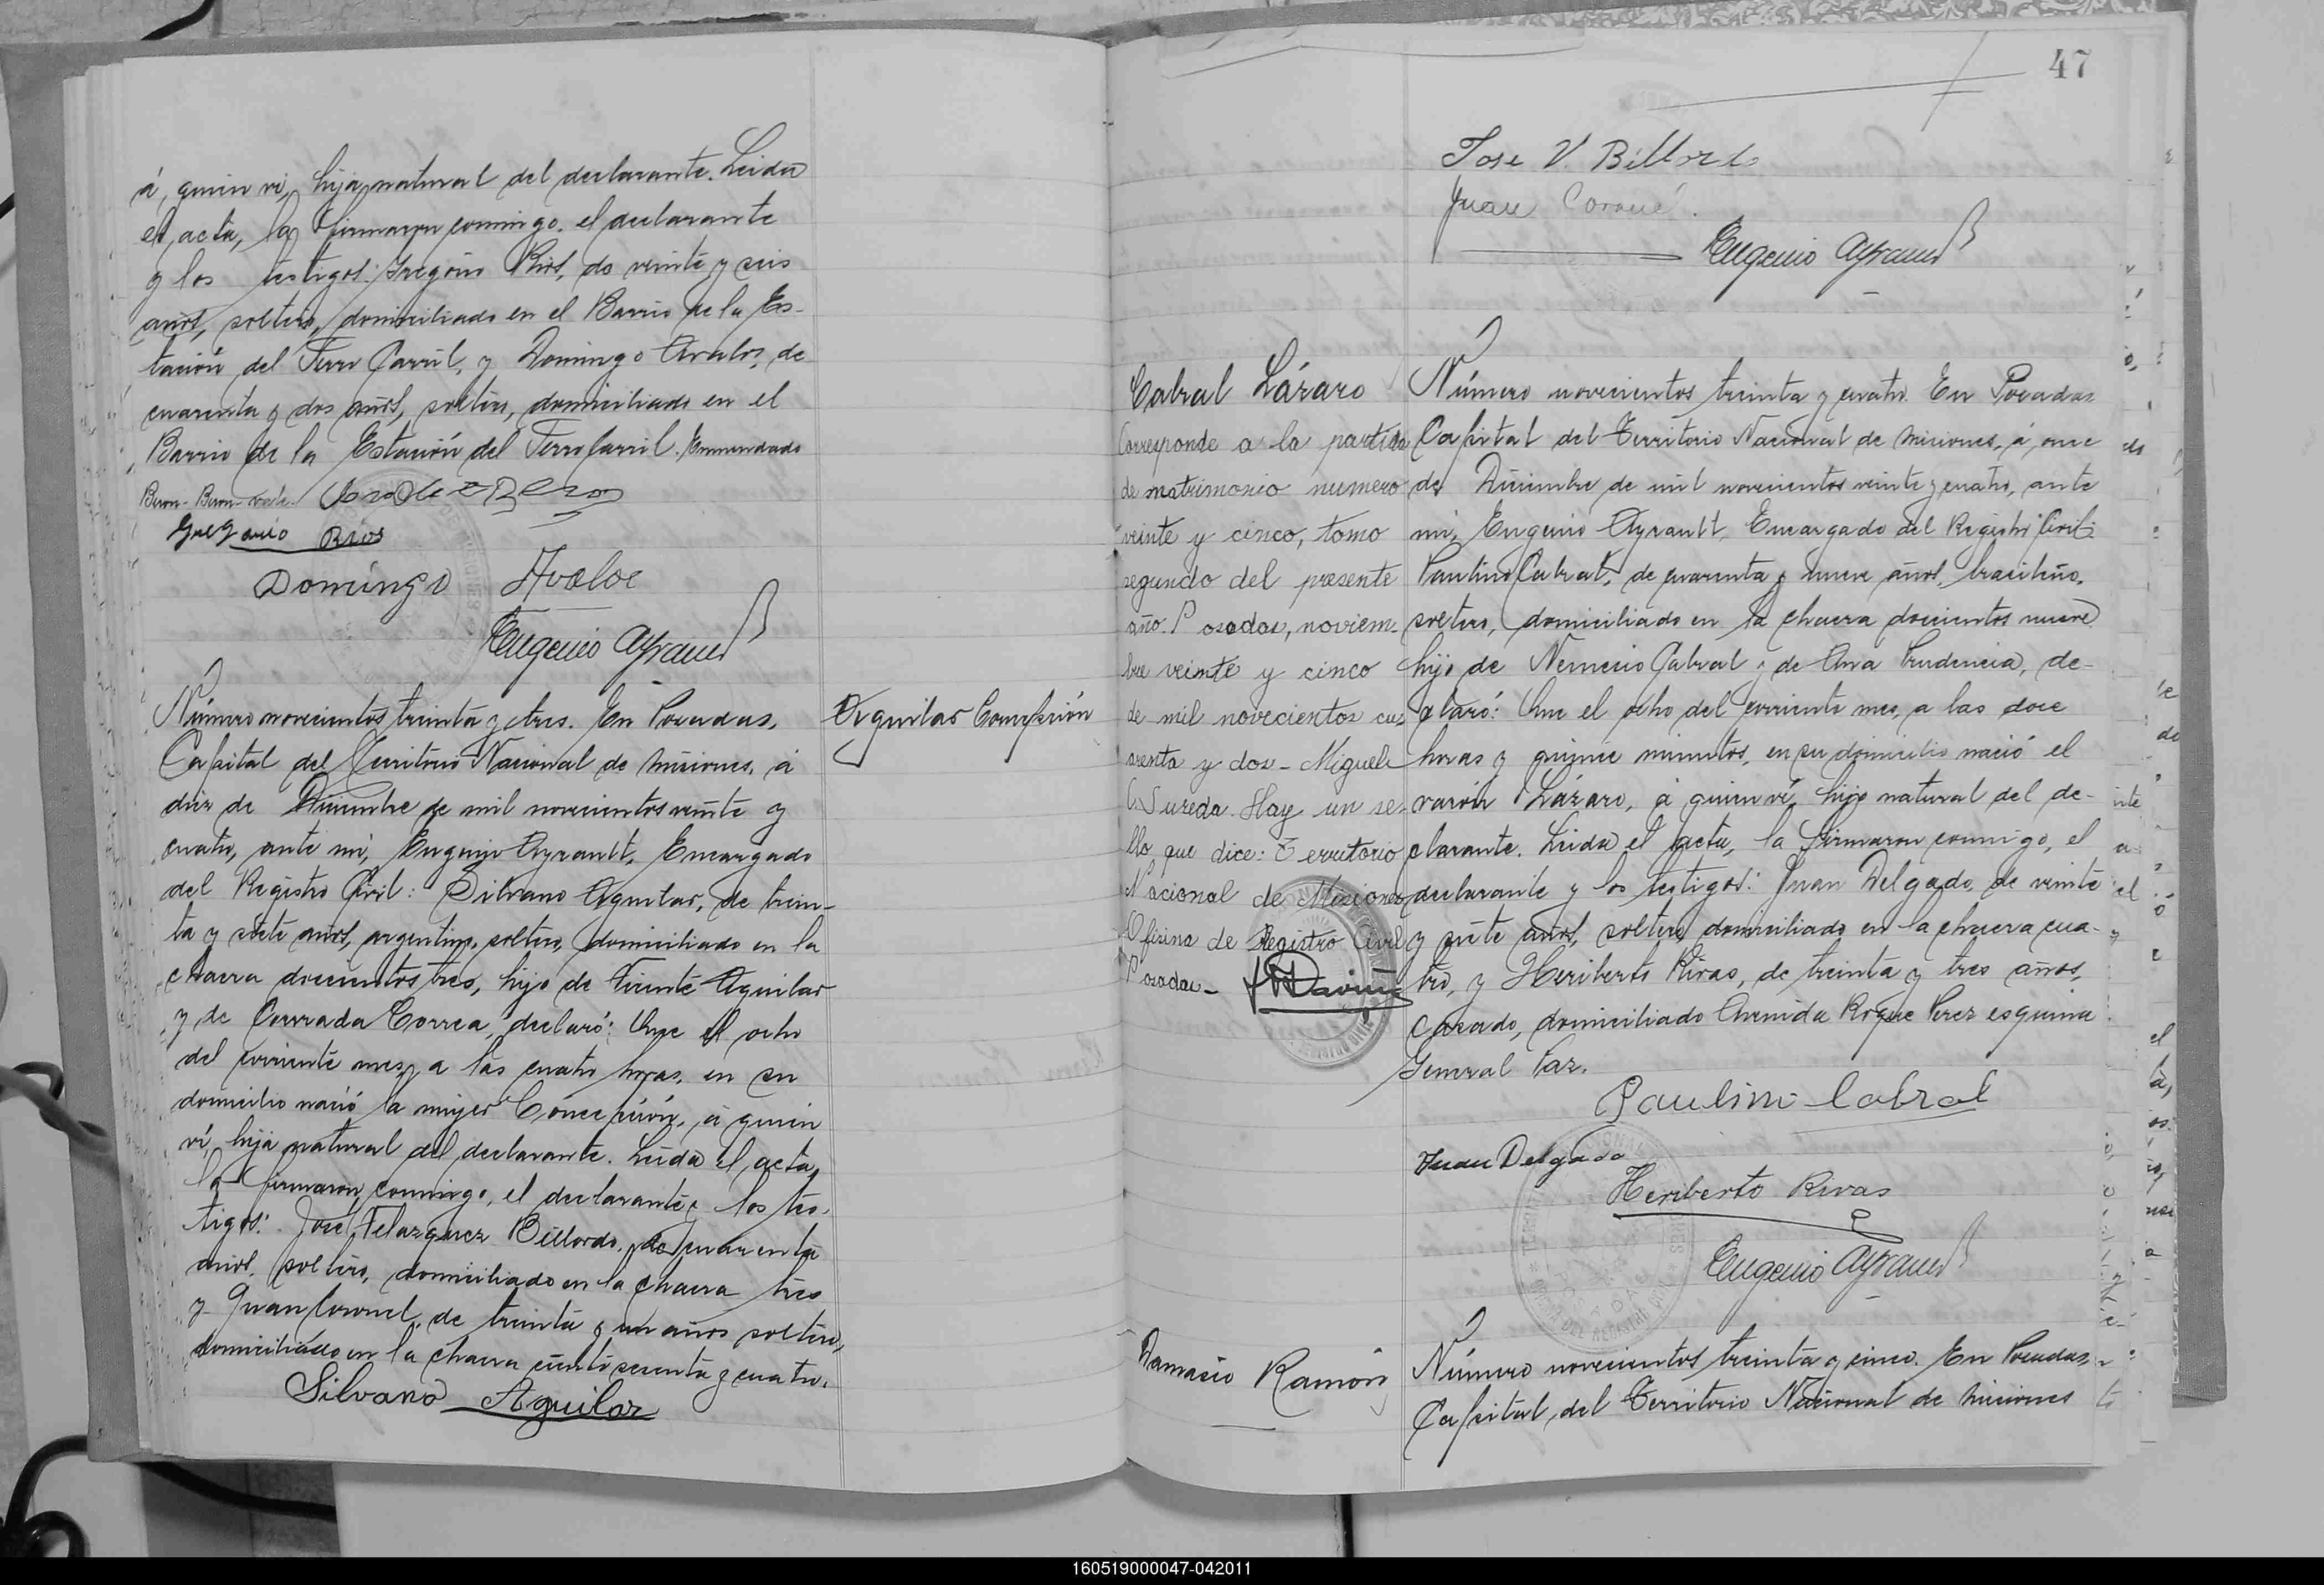 á quien vi, hija natural del declarante. Leida
el acta, la firmaron conmigo, el declarante
y los testigos: Gregorio Rios, de veinte y seis
años, soltero, domiciliado en el Barrio de la Es-
tación del Ferro Carril, y Domingo Avalos, de
cuarenta y dos años, soltero, domiciliado en el
Barrio de la Estación del Ferro Carril. Enmendado
vale.
Gregorio Rios
Domingo Avalos
Eugenio Ayrault
Número novecientos treinta y tres. En Posadas,
Capital del Territorio Nacional de Misiones, á
diez de Diciembre de mil novecientos veinte y
cuatro, ante mi, Eugenio Ayrault, Encargado
del Registro Civil: Silvano Aguilar, de trein-
ta y siete años, argentino, soltero, domiciliado en la
chacra doscientos tres, hijo de Vicente Aguilar
y de Conrada Correa, declaró: Que el ocho
del corriente mes, a las cuatro horas, en su
domicilio nació la mujer Concepción, á quien
ví, hija natural del declarante. Leida el acta,
la firmaron conmigo, el declarante y los tes-
tigos: José Velazquez Billordo, de cuarenta
años, soltero, domiciliado en la chacra tres
y Juan Coronel, de treinta y un años soltero,
domiciliado en la chacra ciento sesenta y cuatro.
Silvano Aguilar
Aguilar Concepción
47
Jose V. Billordo
Juan Coronel.
Eugenio Ayrault
Cabral Lázaro
Corresponde a la partida
de matrimonio numero
veinte y cinco, tomo
segundo del presente
año. Posadas, noviem-
bre veinte y cinco
de mil novecientos cua-
renta y dos - Miguel
A. Sureda. Hay un se-
llo que dice: Territorio
Nacional de Misiones
Oficina de Registro Civil
Posadas -
Número novecientos treinta y cuatro. En Posadas
Capital del Territorio Nacional de Misiones, á once
de Diciembre de mil novecientos veinte y cuatro, ante
mi, Eugenio Ayrault, Encargado del Registro Civil:
Paulino Cabral, de cuarenta y nueve años, brasileño,
soltero, domiciliado en la chacra doscientos nueve
hijo de Nemesio Cabral y de Ana Prudencia, de-
claró: Que el ocho del corriente mes, a las doce
horas y quince minutos, en su domicilio nació el
varón Lázaro, á quien ví, hijo natural del de-
clarante. Leida el acta, la firmaron conmigo, el
declarante y los testigos: Juan Delgado, de veinte
y siete años, soltero, domiciliado en la chacra cua-
tro, y Heriberto Rivas, de treinta y tres años,
casado, domiciliado Avenida Roque Perez esquina
General Paz.
Paulino Cabral
Juan Delgado
Heriberto Rivas
Eugenio Ayrault
Damasio Ramón
Número novecientos treinta y cinco. En Posadas,
Capital del Territorio Nacional de Misiones
160519000047-042011